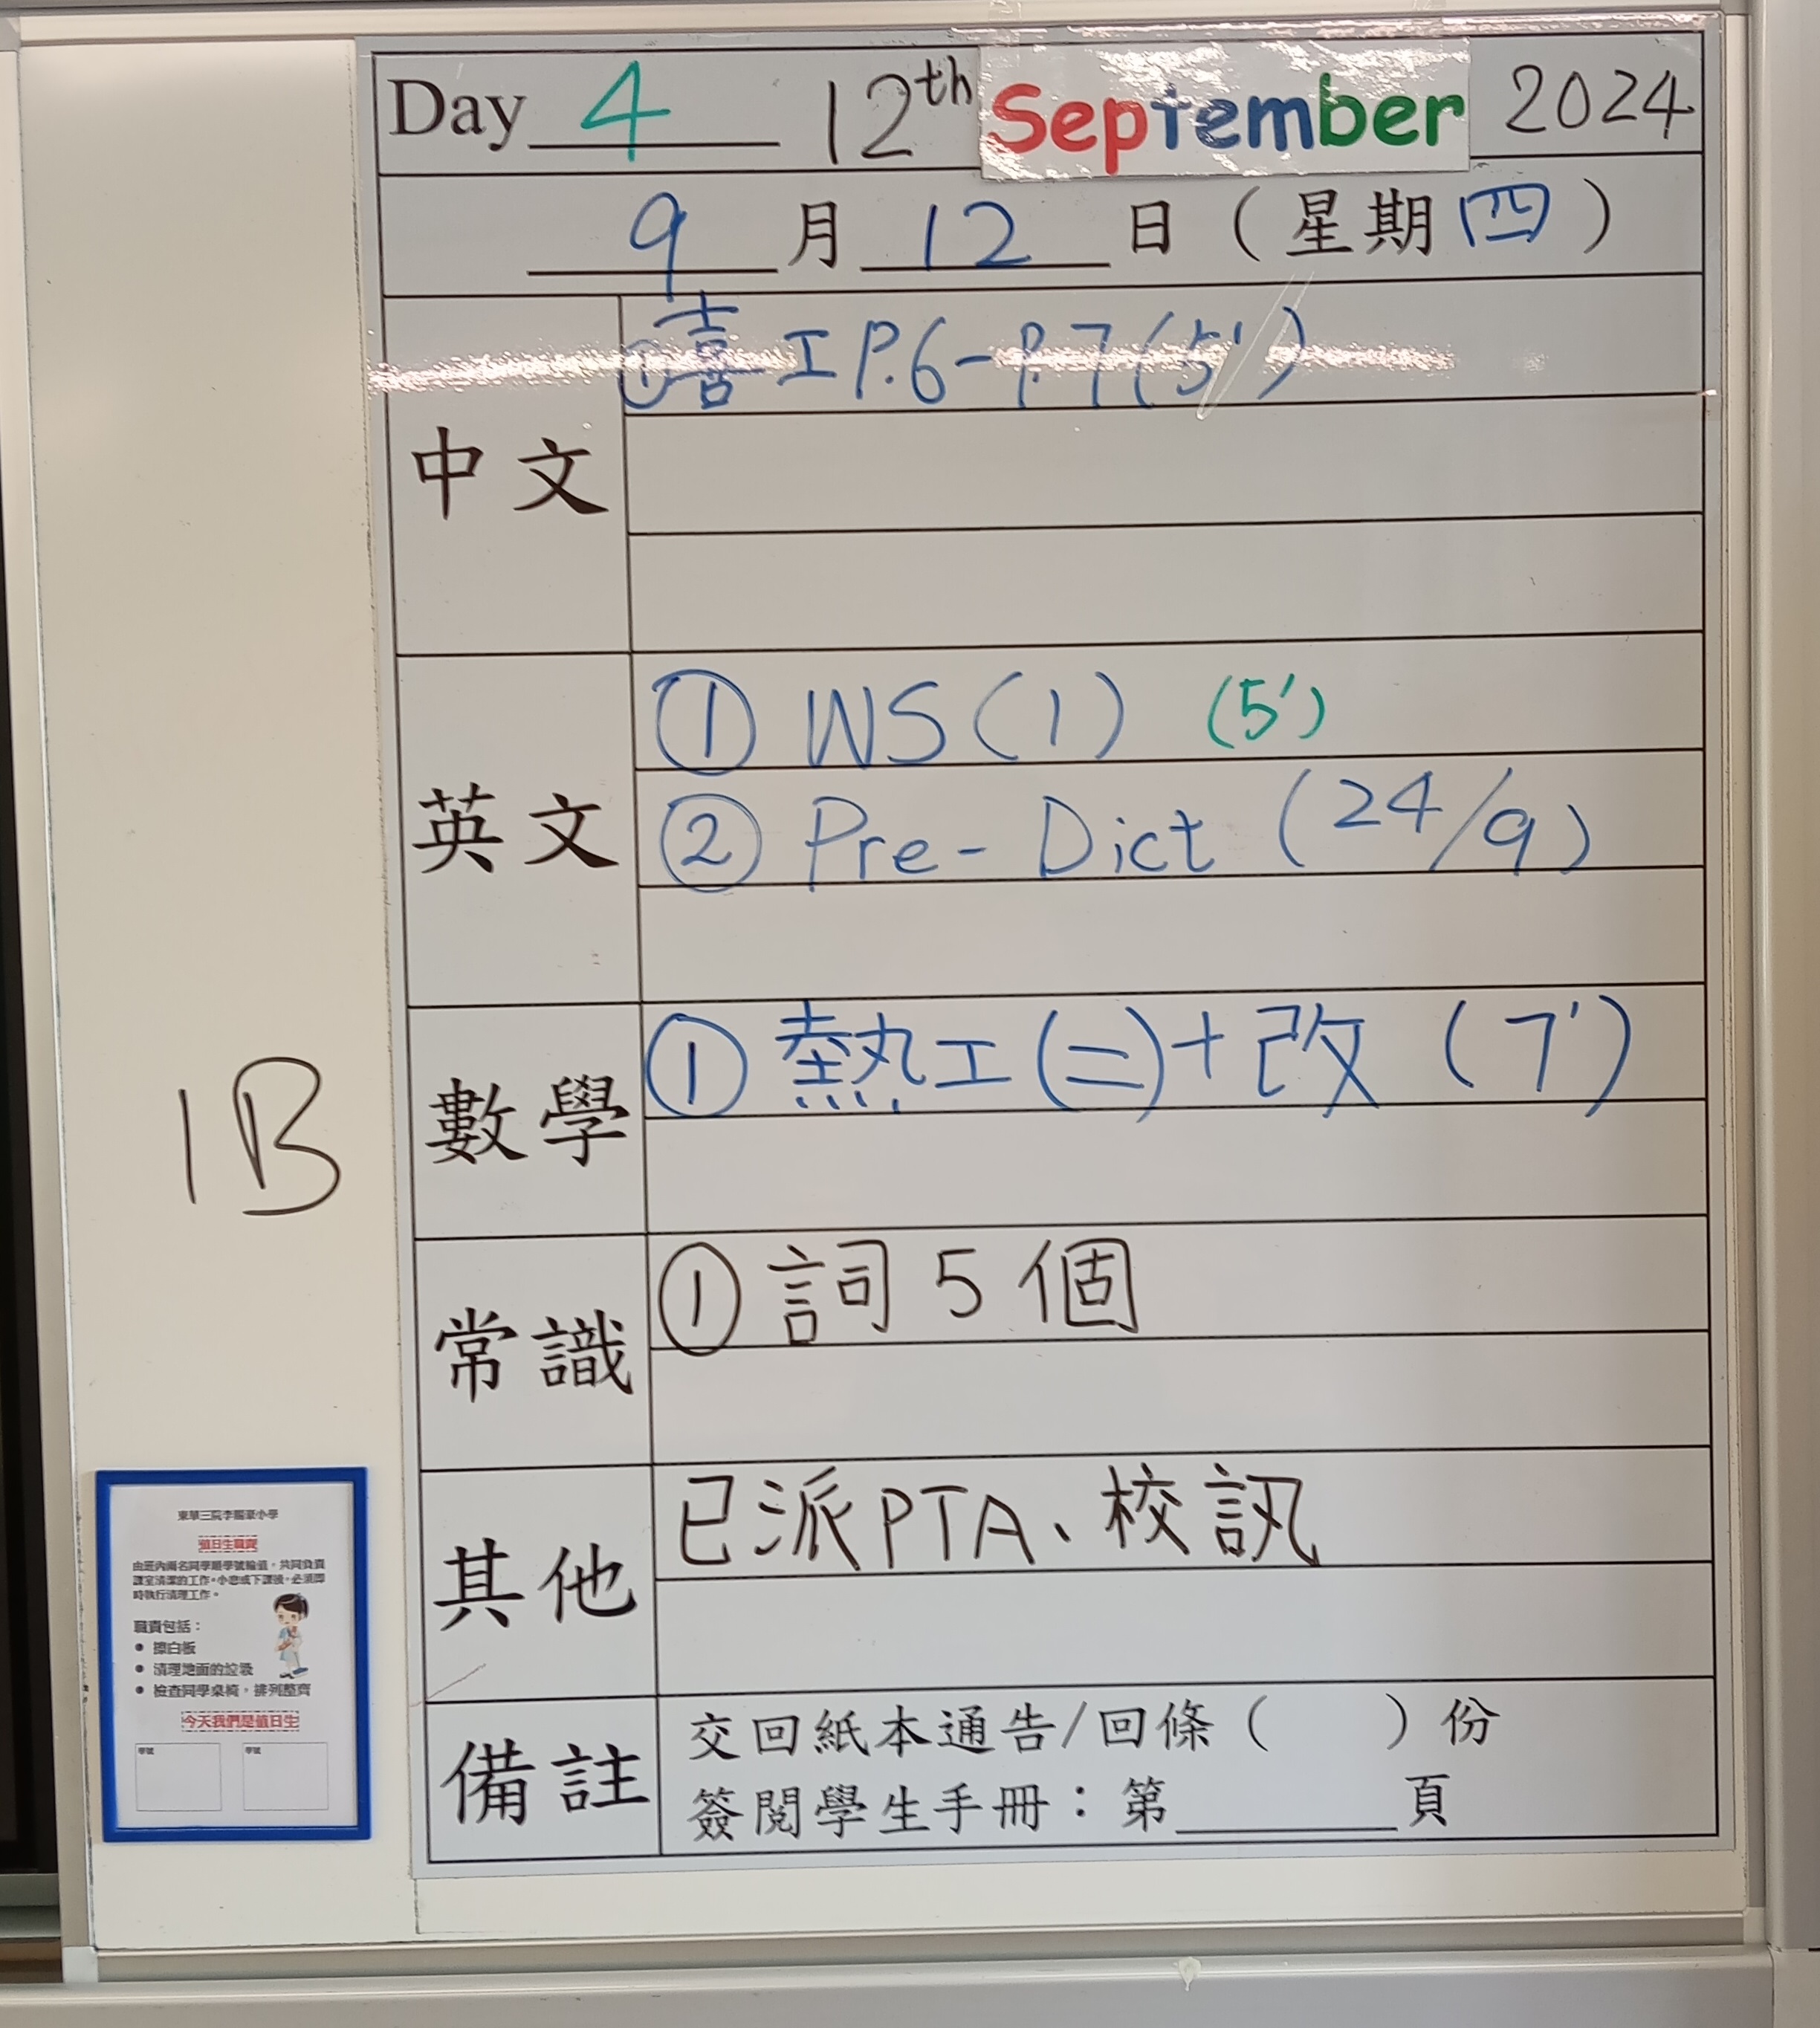 Day 4 12th September 2024
9月12日（星期四）
中文
①喜工P.6-P.7(5')
英文
① WS(1) (5')
② Pre-Dict (24/9)
數學
① 熱工(二)+改 (7')
常識
① 詞5個
其他
已派PTA、校訊
備註
交回紙本通告/回條（　　）份
簽閱學生手冊：第______頁
1B
值日生職責
由班內兩名同學順學號輪值，共同負責
課室清潔的工作。小息或下課後，必須即
時執行清理工作。
職責包括：
● 擦白板
● 清理地面的垃圾
● 檢查同學桌椅，排列整齊
今天我們是值日生
學號 學號